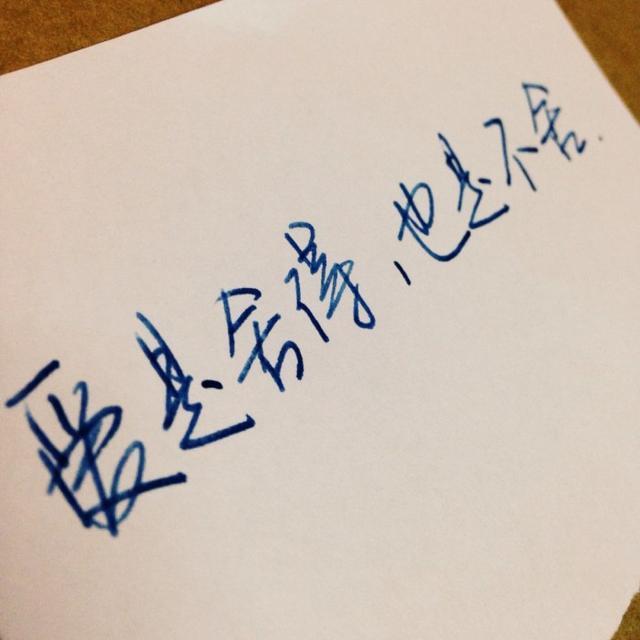 爱是舍得,也是不舍.